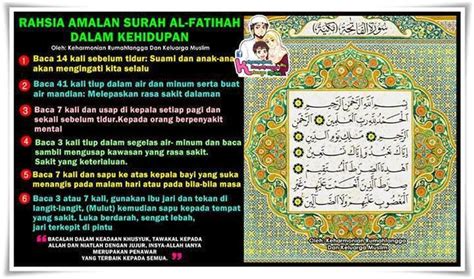 RAHSIA AMALAN SURAH AL-FATIHAH
DALAM KEHIDUPAN
Oleh: Keharmonian Rumahtangga Dan Keluarga Muslim
1 Baca 14 kali sebelum tidur: Suami dan anak-anak
akan mengingati kita selalu
2 Baca 41 kali tiup dalam air dan minum serta buat
air mandian: Melepaskan rasa sakit dalaman
3 Baca 7 kali dan usap di kepala setiap pagi dan
sekali sebelum tidur.Kepada orang berpenyakit
mental
4 Baca 3 kali tiup dalam segelas air- minum dan baca
sambil mengusap kawasan yang rasa sakit.
Sakit yang keterlaluan.
5 Baca 7 kali dan sapu ke atas kepala bayi yang suka
menangis pada malam hari atau pada bila-bila masa
6 Baca 3 atau 7 kali, gunakan ibu jari dan tekan di
langit-langit, (Mulut) kemudian sapu kepada tempat
yang sakit. Luka berdarah, sengat lebah,
jari terkepit di pintu
"BACALAH DALAM KEADAAN KHUSYUK, TAWAKAL KEPADA
ALLAH DAN NIATLAH DENGAN JUJUR, INSYA-ALLAH IANYA
MERUPAKAN PENAWAR
YANG TERBAIK KEPADA SEMUA."
سُورَةُ الْفَاتِحَةِ
بِسْمِ اللَّهِ الرَّحْمَٰنِ الرَّحِيمِ
الْحَمْدُ لِلَّهِ رَبِّ الْعَالَمِينَ
الرَّحْمَٰنِ الرَّحِيمِ مَالِكِ يَوْمِ الدِّينِ
إِيَّاكَ نَعْبُدُ وَإِيَّاكَ نَسْتَعِينُ
اهْدِنَا الصِّرَاطَ الْمُسْتَقِيمَ
صِرَاطَ الَّذِينَ أَنْعَمْتَ عَلَيْهِمْ غَيْرِ
الْمَغْضُوبِ عَلَيْهِمْ وَلَا الضَّالِّينَ
Oleh: Keharmonian Rumahtangga
Dan Keluarga Muslim